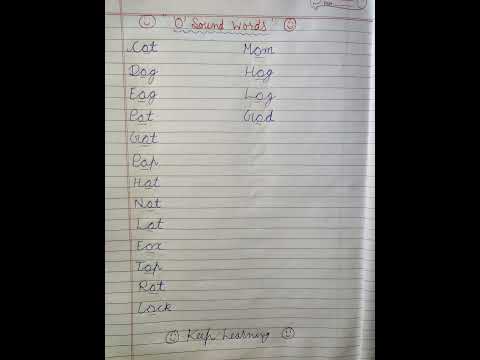 "O" Sound Words
Cot Mom
Dog Hog
Fog Log
Pot God
Got
Pop
Hot
Not
Lot
Fox
Top
Rot
Lock
Keep Learning